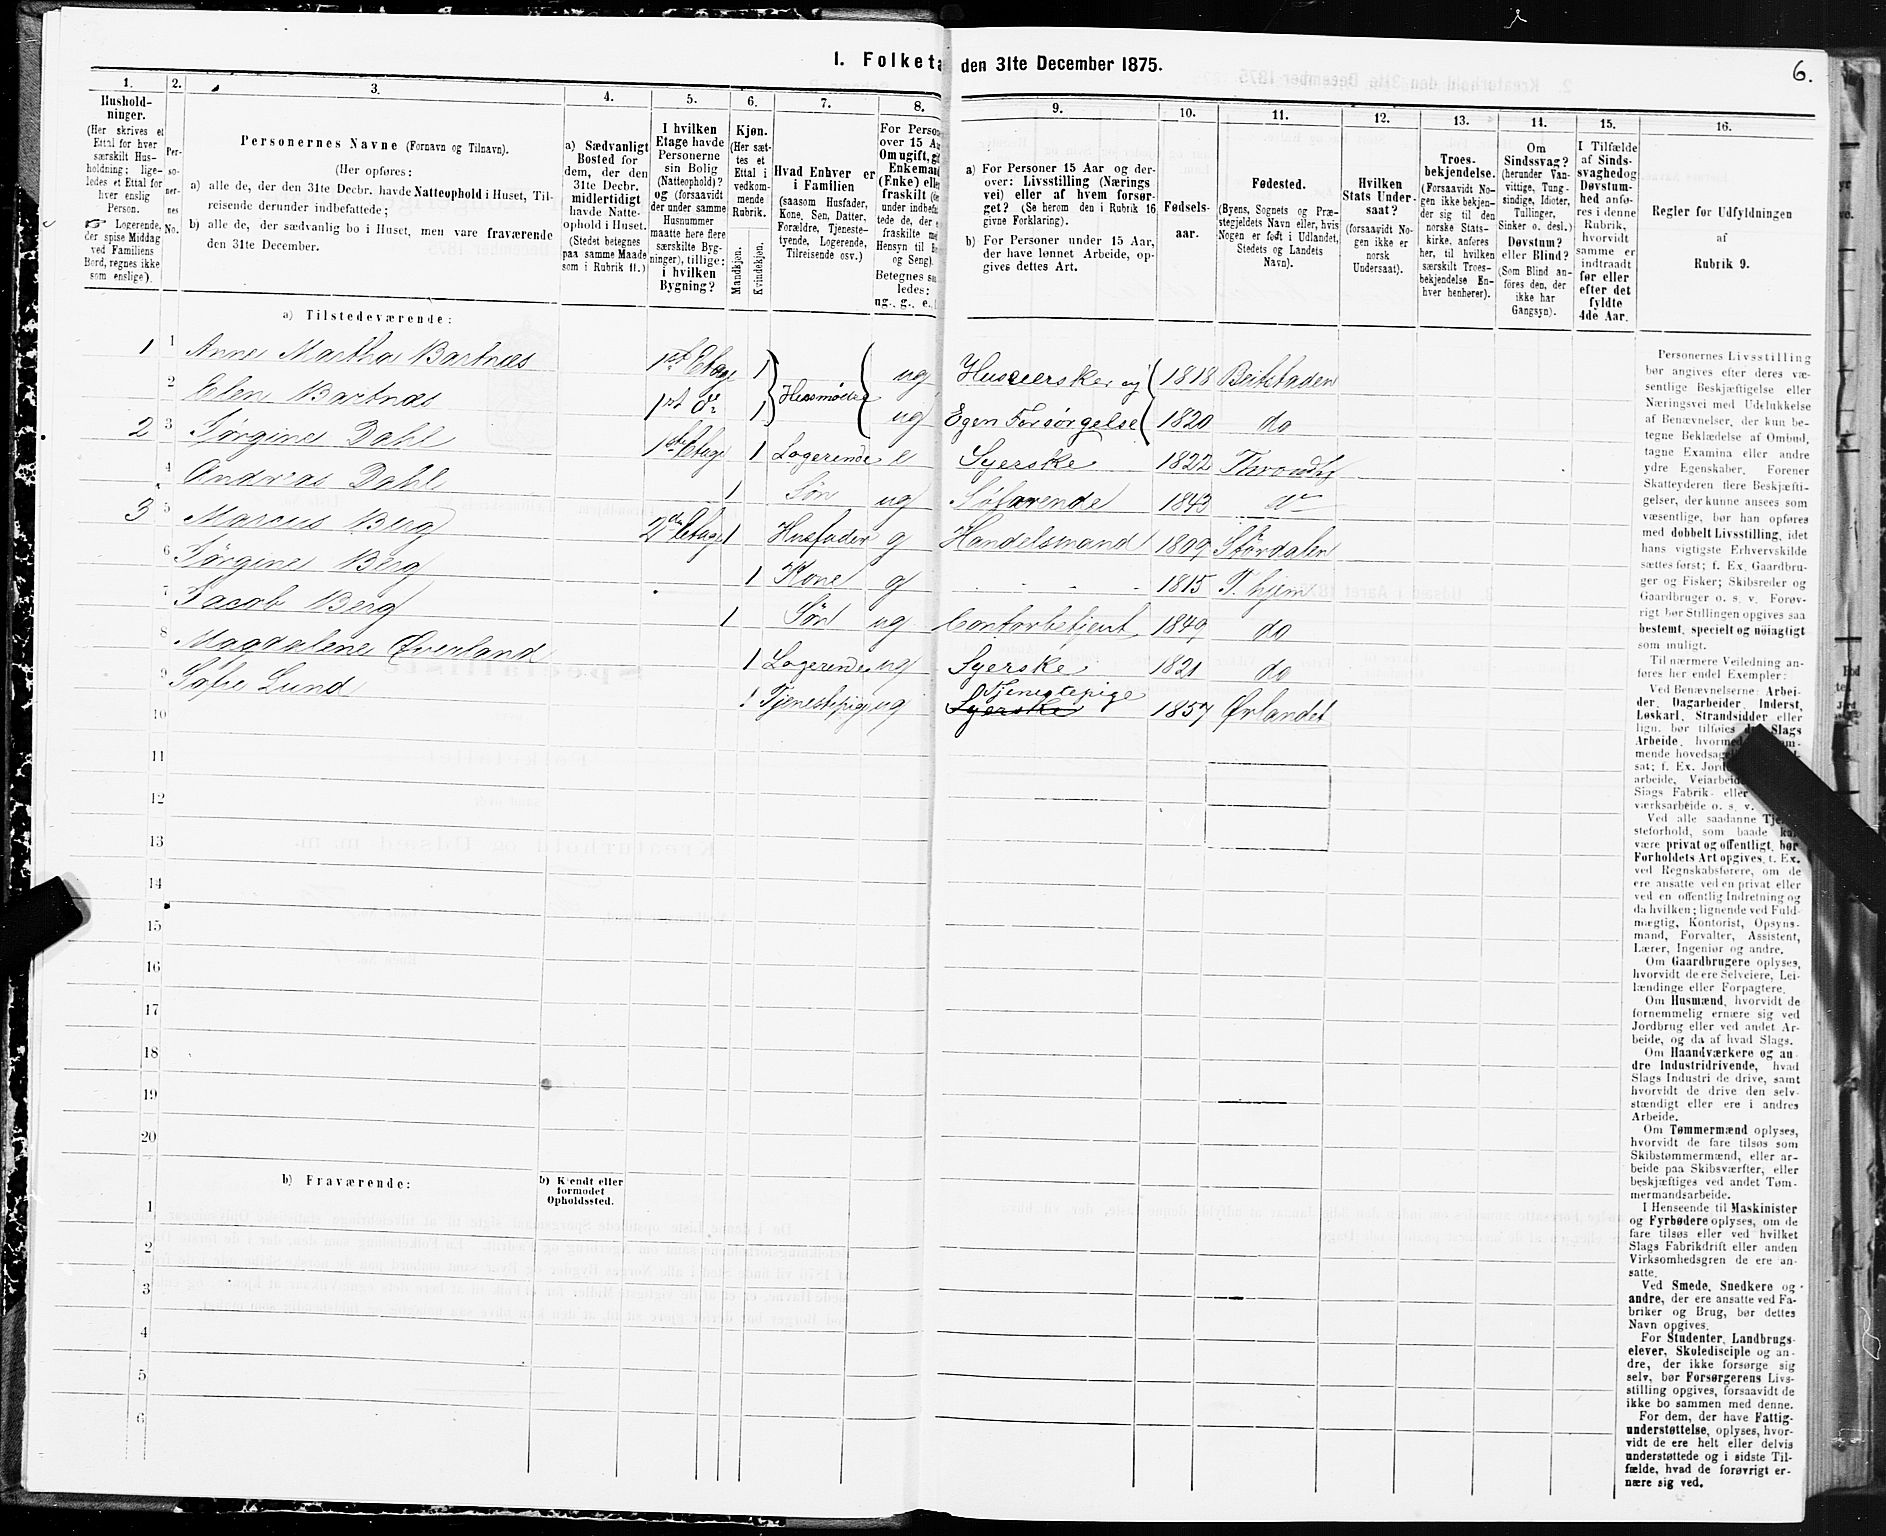 1. Folketæ den 31te December 1875.
6.
1. 2. 3. 4. 5. 6. 7. 8. 9. 10. 11. 12. 13. 14. 15. 16.
Hushold-
ninger.
(Her skrives et
Ettal for hver
særskilt Hus-
holdning; lige-
ledes et Ettal for
hver enslig
Person.
☞ Logerende,
der spise Middag
ved Familiens
Bord, regnes ikke
som enslige).
Per-
so-
ner-
nes
No.
Personernes Navne (Fornavn og Tilnavn).
(Her opføres:
a) alle de, der den 31te Decbr. havde Natteophold i Huset, Til-
reisende derunder indbefattede;
b) alle de, der sædvanlig bo i Huset, men vare fraværende
den 31te December.
a) Sædvanligt
Bosted for
dem, der den
31te Decbr.
midlertidigt
havde Natte-
ophold i Huset.
(Stedet betegnes
paa samme Maade
som i Rubrik 11.)
I hvilken
Etage havde
Personerne
sin Bolig
(Natteophold)?
og (forsaavidt
der under samme
Husnummer
maatte høre flere
særskilte Byg-
ninger), tillige:
i hvilken
Bygning?
Kjøn.
(Her sæt-
tes et
Ettal i
vedkom-
mende
Rubrik.
Mandkjøn.
Kvindekjøn.
Hvad Enhver er
i Familien
(saasom Husfader,
Kone, Søn, Datter,
Forældre, Tjeneste-
tyende, Logerende,
Tilreisende osv.)
For Perso
over 15 Aa
Om ugift, gi
Enkemand
(Enke) elle
fraskilt
under indbefa
tede de, der e
fraskilte me
Hensyn til B
og Seng).
Betegnes sa
ledes:
ug., g., e.,
a) For Personer 15 Aar og der-
over: Livsstilling (Nærings
vei) eller af hvem forsør-
get? (Se herom den i Rubrik 16
givne Forklaring).
b) For Personer under 15 Aar,
der have lønnet Arbeide, op-
gives dettes Art.
Fødsels-
aar.
Fødested.
(Byens, Sognets og Præ-
stegjeldets Navn eller, hvis
Nogen er født i Udlandet,
Stedets og Landets
Navn).
Hvilken
Stats Under-
saat?
(forsaavidt No-
gen ikke er
norsk
Undersaat).
Troes-
bekjendelse.
(Forsaavidt No-
gen ikke bekjen-
der sig til den
norske Stats-
kirke, anføres
her, til hvilken
særskilt Troes-
bekjendelse En-
hver henhører).
Om
Sindssvag?
(herunder Van-
vittige, Tung-
sindige, Idioter,
Tullinger,
Sinker o. desl.)
Døvstum?
eller Blind?
(Som Blind an-
føres den, der
ikke har
Gangsyn).
I Tilfælde
af Sinds-
svaghed og
Døvstum-
hed anfø-
res i denne
Rubrik,
hvorvidt
samme er
indtraadt
før eller
efter det
fyldte
4de Aar.
Regler for Udfyldningen
af
Rubrik 9.
a) Tilstedeværende:
1 1 Anne Martha Bartnæs 1ste Etage 1 Husmødre ug Huseierske og 1818 Beitstaden
2 Elen Bartnæs 1st do 1 ug Egen Forsørgelse 1820 do
2 3 Jørgine Dahl 1ste Etage 1 Logerende e Syerske 1822 Throndhj
4 Andreas Dahl 1 Søn ug Søfarende 1843 do
3 5 Marcus Berg 2den Etage 1 Husfader g Handelsmand 1809 Størdalen
6 Jørgine Berg 1 Kone g 1815 T.hjem
7 Jacob Berg 1 Søn ug Contorbetjent 1849 do
8 Magdalene Øverland 1 Logerende ug Syerske 1821 do
9 Sofie Lund 1 Tjenestepige ug Tjenestepige Syerske 1857 Ørlandet
10
11
12
13
14
15
16
17
18
19
20
b) Fraværende:
b) Kjendt eller
formodet
Opholdssted.
1
2
3
4
5
6
Personernes Livsstilling
bør angives efter deres væ-
sentlige Beskjæftigelse eller
Næringsvei med Udelukkelse
af Benævnelser, der kun be-
tegne Beklædelse af Ombud,
tagne Examina eller andre
ydre Egenskaber. Forener
Skatteyderen flere Beskjæfti-
gelser, der kunne ansees som
væsentlige, bør han opføres
med dobbelt Livsstilling, idet
hans vigtigste Erhvervskilde
sættes først; f. Ex. Gaardbru-
ger og Fisker; Skibsreder og
Gaardbruger o. s. v. Forøv-
rigt bør Stillingen opgives saa
bestemt, specielt og nøiagtigt
som muligt.
Til nærmere Veiledning an-
føres her endel Exempler:
Ved Benævnelserne: Arbei-
der, Dagarbeider, Inderst,
Løskarl, Strandsidder eller
lign. bør tilføies det Slags
Arbeide, hvormed
mende hovedsage
sat; f. Ex. Jord
arbeide, Veiarbeide
Slags Fabrik- eller
værksarbeide o. s. v.
Ved alle saadanne Tje
steforhold, som baade kan
være privat og offentligt, bør
Forholdets Art opgives, f. Ex.
ved Regnskabsførere, om de
ere ansatte ved en privat eller
ved en offentlig Indretning og
da hvilken; lignende ved Fuld-
mægtig, Kontorist, Opsyns-
mand, Forvalter, Assistent,
Lærer, Ingeniør og andre.
Om Gaardbrugere oplyses,
hvorvidt de ere Selveiere, Lei-
lændinge eller Forpagtere.
Om Husmænd, hvorvidt de
fornemmelig ernære sig ved
Jordbrug eller ved andet Ar-
beide, og da af hvad Slags.
Om Haandværkere og an-
dre Industridrivende, hvad
Slags Industri de drive, samt
hvorvidt de drive den selv-
stændigt eller ere i andres
Arbeide.
Om Tømmermænd oplyses,
hvorvidt de fare tilsøs som
Skibstømmermænd, eller ar-
beide paa Skibsværfter, eller
beskjæftiges ved andet Tøm-
mermandsarbeide.
I Henseende til Maskinister
og Fyrbødere oplyses, om de
fare tilsøs eller ved hvilket
Slags Fabrikdrift eller anden
Virksomhedsgren de ere an-
satte.
Ved Smede, Snedkere og
andre, der ere ansatte ved Fa-
briker og Brug, bør dettes
Navn opgives.
For Studenter, Landbrugs-
elever, Skoledisciple og an-
dre, der ikke forsørge sig
selv, bør Forsørgerens Livs-
stilling opgives, forsaavidt de
ikke bo sammen med denne.
For dem, der have Fattig-
understøttelse, oplyses, hvor-
vidt de ere helt eller delvis
understøttede og i sidste Til-
fælde, hvad de forøvrigt er-
nære sig ved.